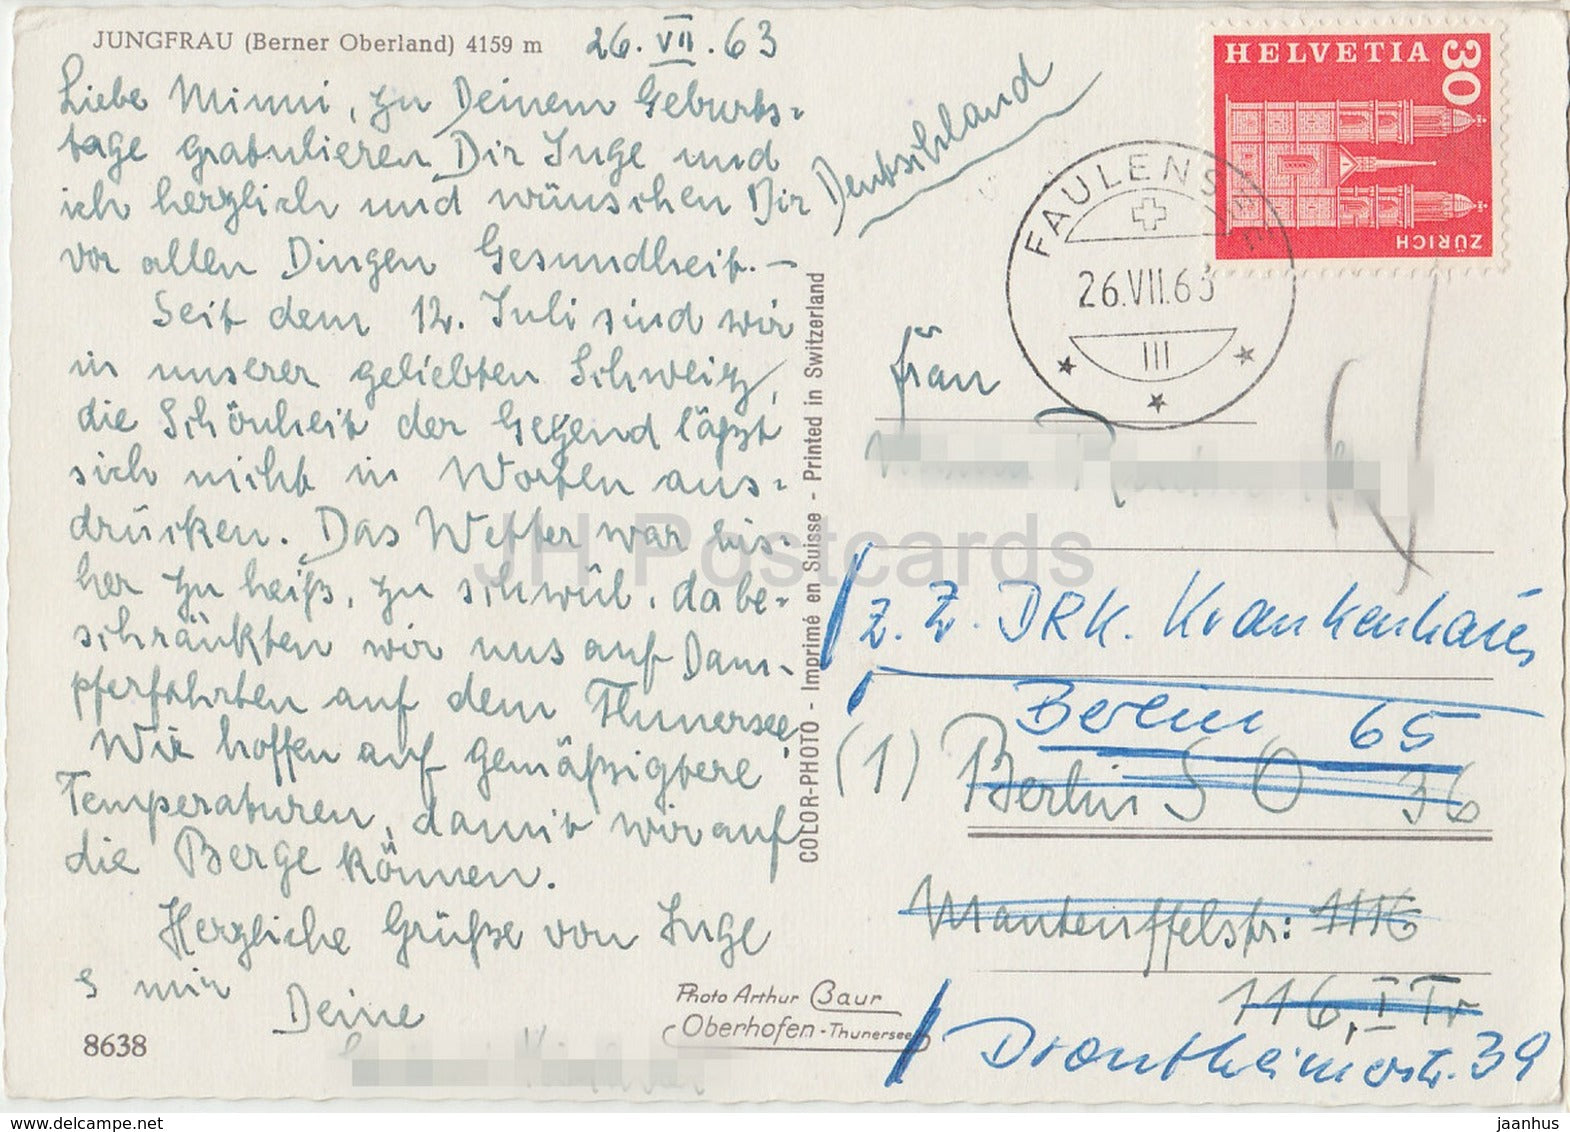 JUNGFRAU (Berner Oberland) 4159 m
26.VII.63
Liebe Minni, zu Deinem Geburts-
tage gratulieren Dir Inge und
ich herzlich und wünschen Dir
vor allen Dingen Gesundheit. –
Seit dem 12. Juli sind wir
in unserer geliebten Schweiz,
die Schönheit der Gegend läßt
sich nicht in Worten aus-
drücken. Das Wetter war bis-
her zu heiß, zu schwül, da be-
schränkten wir uns auf Dam-
pferfahrten auf dem Thunersee.
Wir hoffen auf gemäßigtere
Temperaturen, damit wir auf
die Berge können.
Herzliche Grüße von Inge
& mir
Deine
8638
Photo Arthur Baur
Oberhofen-Thunersee
COLOR-PHOTO - Imprimé en Suisse - Printed in Switzerland
Deutschland
HELVETIA
30
ZÜRICH
FAULENSEE
26.VII.63
III
Frau
z. Z. DRK. Krankenhaus
Berlin 65
(1) Berlin SO 36
Manteuffelstr: 1116
116, I Tr
Drontheimerstr. 39
JH Postcards
jaanhus
www.delcampe.net